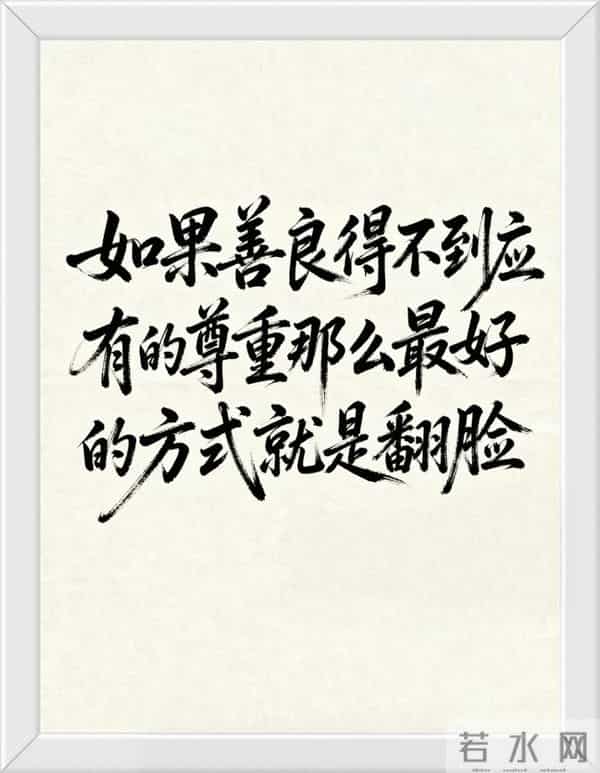 如果善良得不到应
有的尊重那么最好
的方式就是翻脸
若水网